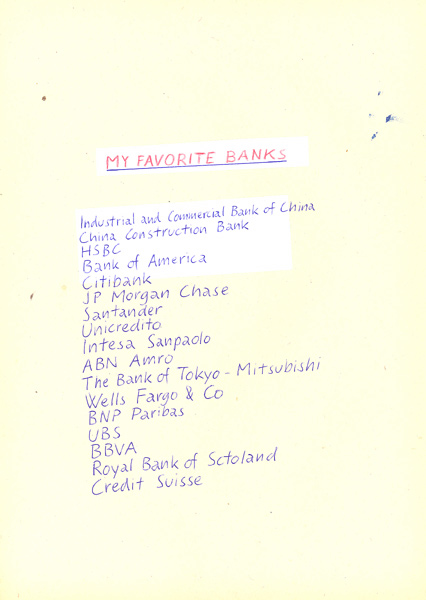 MY FAVORITE BANKS
Industrial and Commercial Bank of China
China Construction Bank
HSBC
Bank of America
Citibank
JP Morgan Chase
Santander
Unicredito
Intesa Sanpaolo
ABN Amro
The Bank of Tokyo - Mitsubishi
Wells Fargo & Co
BNP Paribas
UBS
BBVA
Royal Bank of Sctoland
Credit Suisse